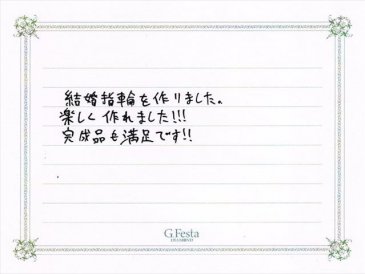 結婚指輪を作りました。
楽しく作れました!!!
完成品も満足です!!
G.Festa